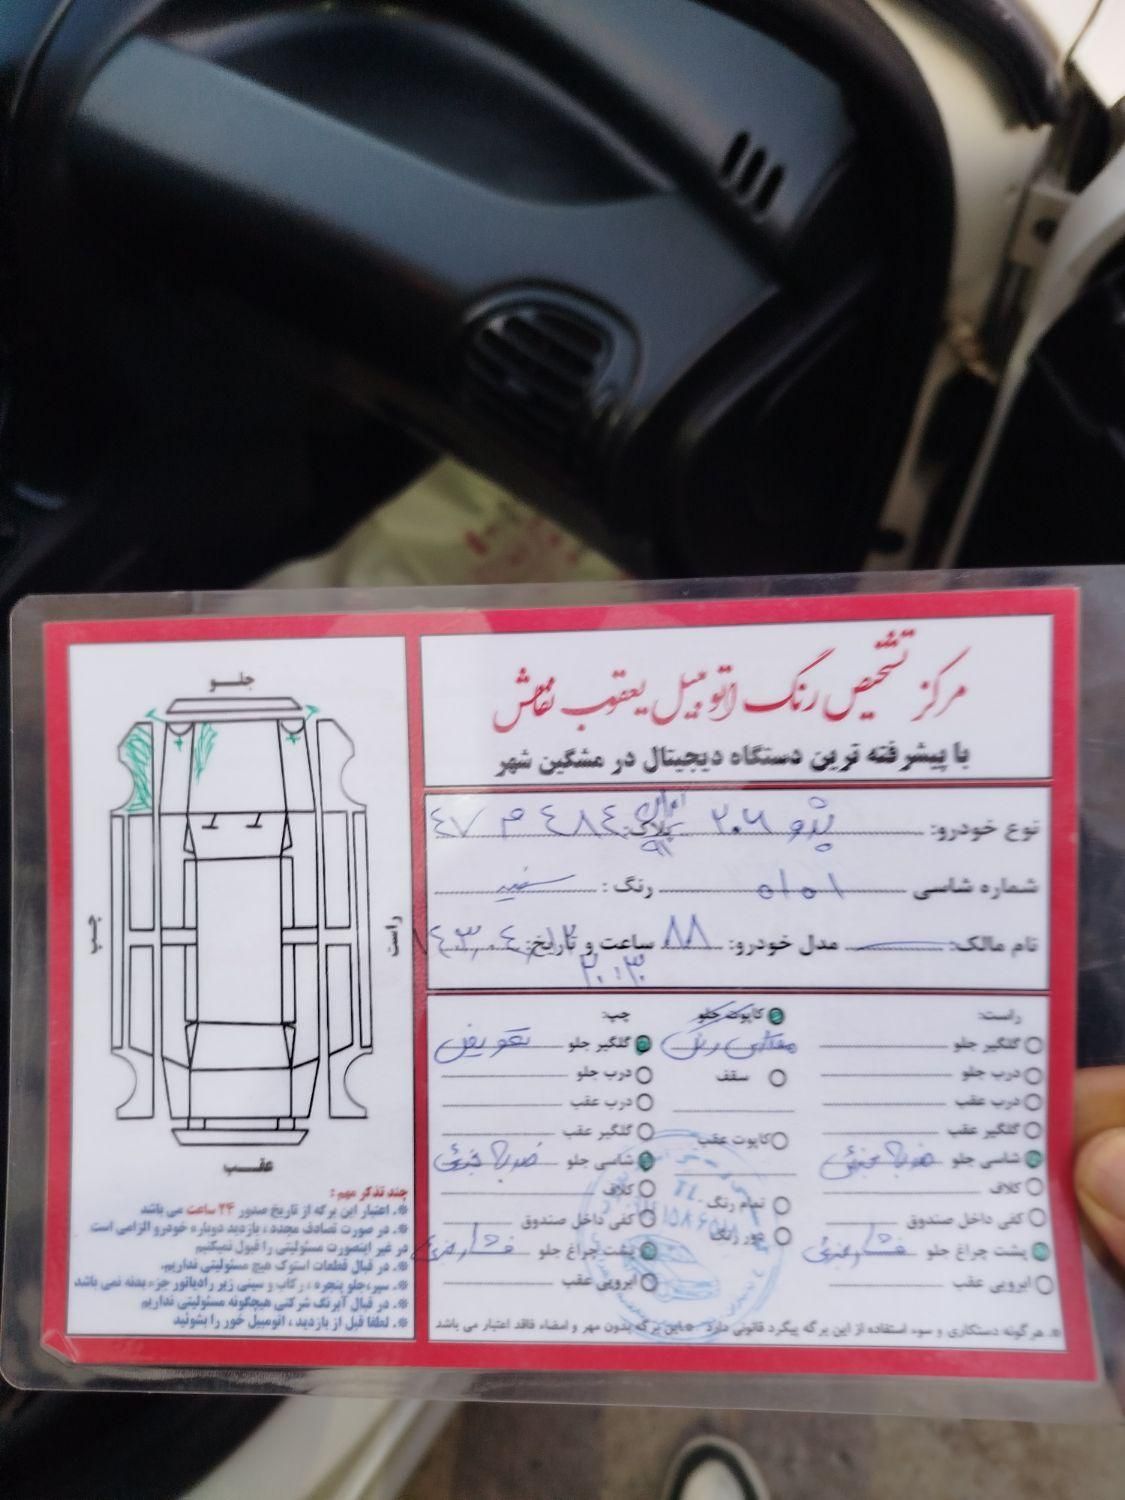 مرکز تشخیص رنگ اتومبیل یعقوب نقاش
با پیشرفته ترین دستگاه دیجیتال در مشگین شهر
نوع خودرو: پژو ۲۰۶ پلاک: ایران ۹۱ ۴۸۴ م ۴۷
شماره شاسی ۵۱۵۱ رنگ: سفید
نام مالک: مدل خودرو: ۸۸ ساعت و تاریخ:
۲۰:۳۰
راست:
گلگیر جلو
درب جلو
درب عقب
گلگیر عقب
شاسی جلو ضربه جزئی
کلاف
کفی داخل صندوق
پشت چراغ جلو فشار جزئی
ابرویی عقب
کاپوت جلو
رنگ
سقف
کاپوت عقب
تمام رنگ
دور رنگ
چپ:
گلگیر جلو تعویض
درب جلو
درب عقب
گلگیر عقب
شاسی جلو ضربه جزئی
کلاف
کفی داخل صندوق
پشت چراغ جلو فشار جزئی
ابرویی عقب
*. هر گونه دستکاری و سوء استفاده از این برگه پیگرد قانونی دارد *این برگه بدون مهر و امضاء فاقد اعتبار می باشد
جلــو
چپ
راست
عقــب
چند تذکر مهم :
*. اعتبار این برگه از تاریخ صدور ۲۴ ساعت می باشد
*. در صورت تصادف مجدد ، بازدید دوباره خودرو الزامی است
در غیر اینصورت مسئولیتی را قبول نمیکنیم
*. در قبال قطعات استوک هیچ مسئولیتی نداریم.
*. سپر،جلو پنجره ، رکاب و سینی زیر رادیاتور جزء بدنه نمی باشد
*. در قبال آبرنگ شرکتی هیچگونه مسئولیتی نداریم
*. لطفا قبل از بازدید ، اتومبیل خور را بشوئید